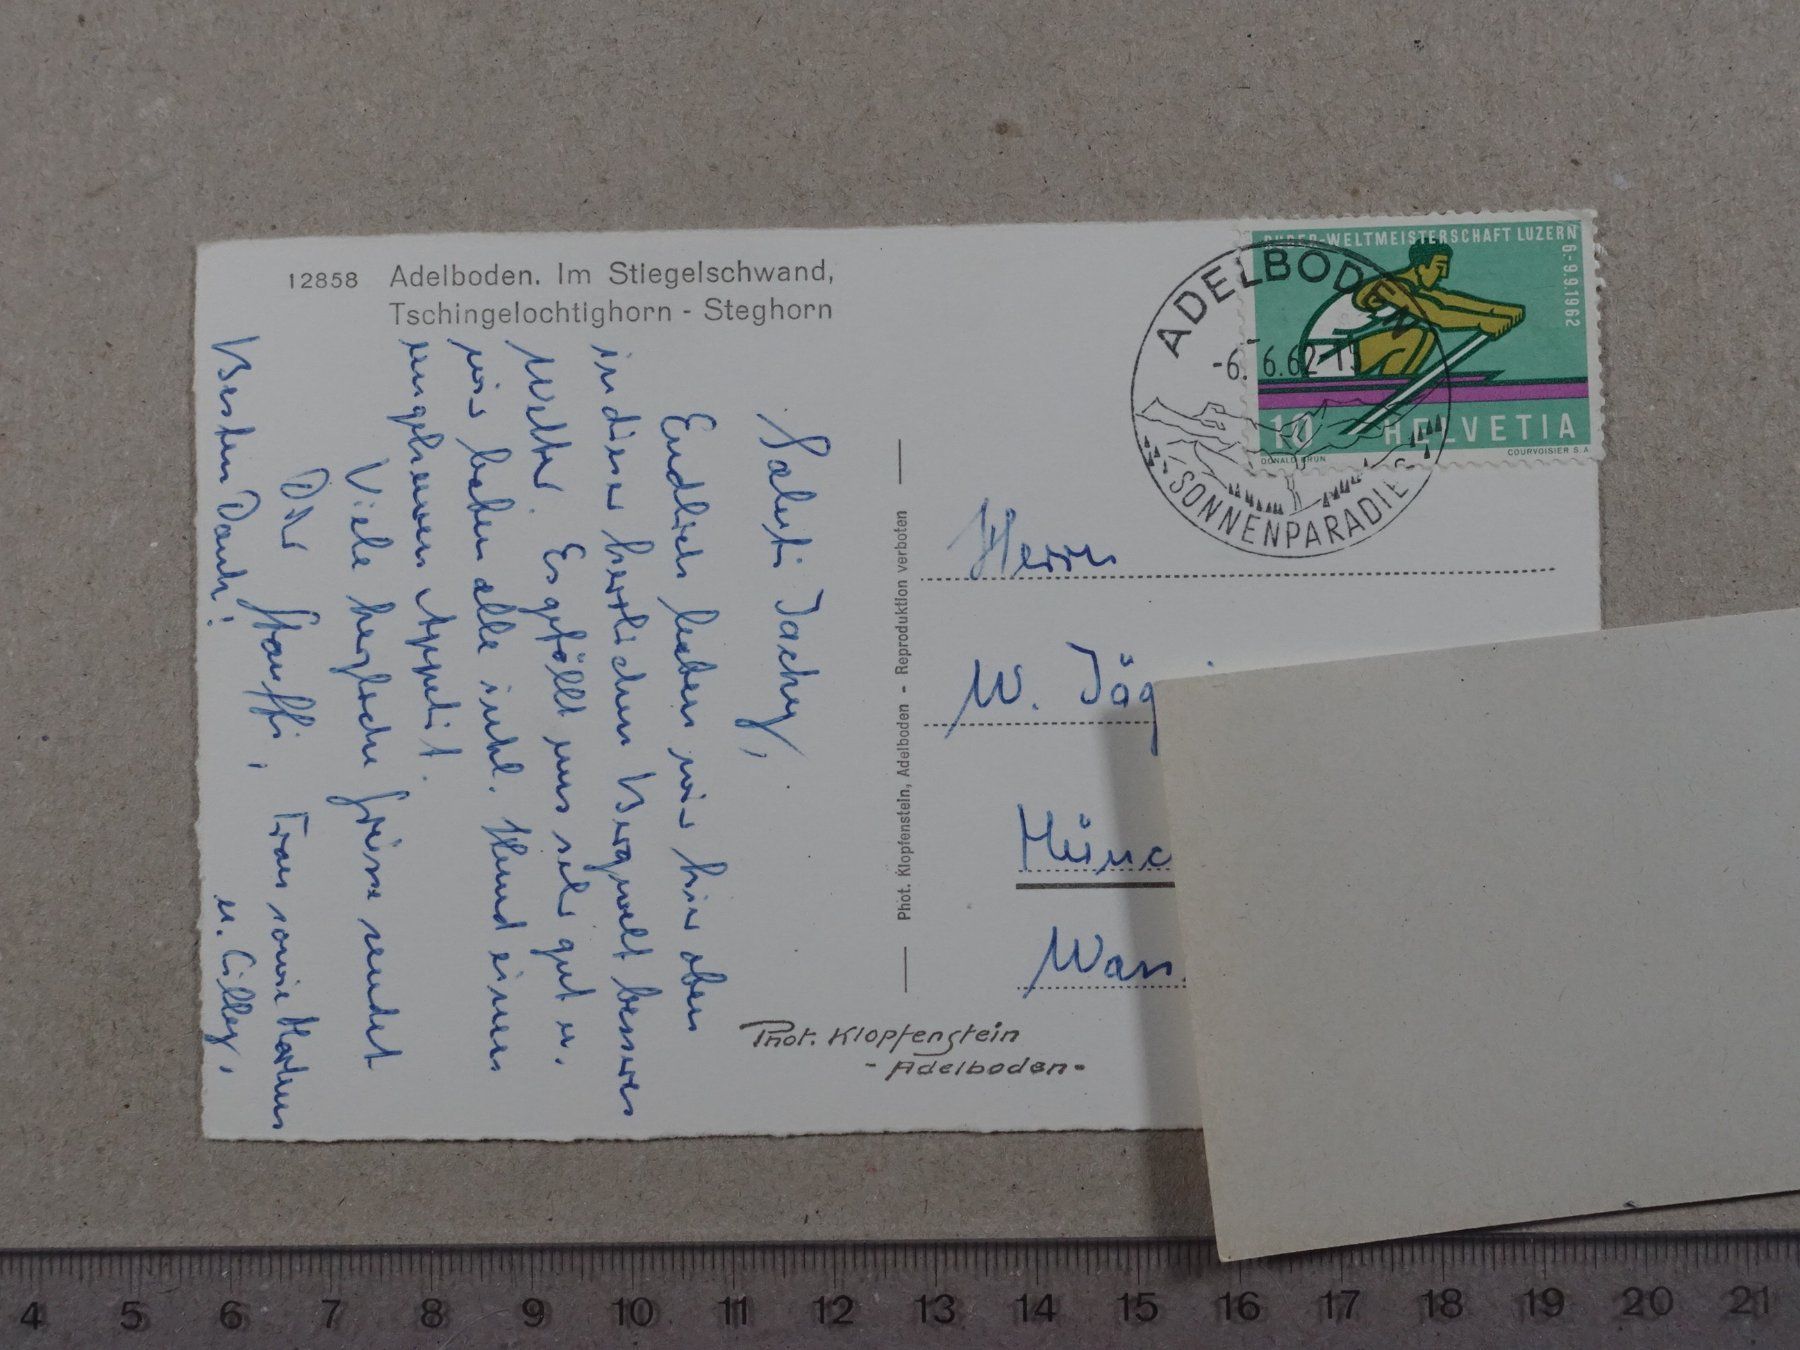 12858 Adelboden. Im Stiegelschwand,
Tschingelochtighorn - Steghorn
Saluti Jacky,
Endlich haben wir hier oben
in dieser herrlichen Bergwelt besseres
Wetter. Es gefällt uns sehr gut u.
wir haben alle inkl. Hund einen
ungeheuren Appetit.
Viele herzliche Grüsse sendet
Dir Stauffi, Frau sowie Martin
Besten Dank! u. Cilley,
Phot. Klopfenstein, Adelboden - Reproduktion verboten
Phot. Klopfenstein
- Adelboden -
RUDER-WELTMEISTERSCHAFT LUZERN
6.-9.9.1962
10 HELVETIA
DONALD BRUN COURVOISIER S.A
ADELBODEN
-6.6.62-15
SONNENPARADIES
Herrn
W. Jäg
Münc
Wan
4 5 6 7 8 9 10 11 12 13 14 15 16 17 18 19 20 21